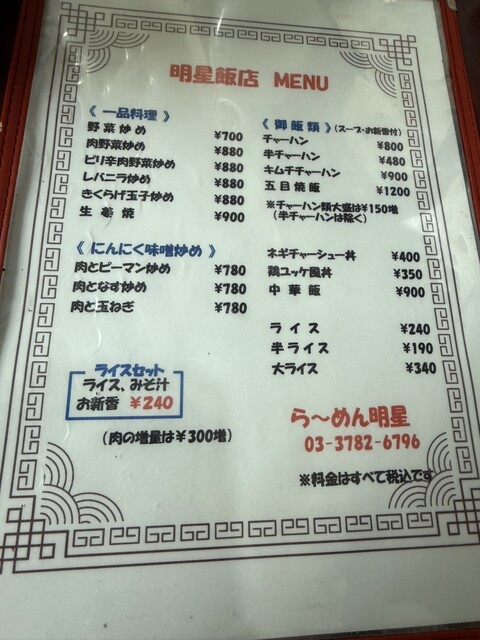 明星飯店 MENU
《 一品料理 》
野菜炒め ¥700
肉野菜炒め ¥880
ピリ辛肉野菜炒め ¥880
レバニラ炒め ¥880
きくらげ玉子炒め ¥880
生姜焼 ¥900
《 にんにく味噌炒め 》
肉とピーマン炒め ¥780
肉となす炒め ¥780
肉と玉ねぎ ¥780
ライスセット
ライス、みそ汁
お新香 ¥240
(肉の増量は¥300増)
《 御飯類 》(スープ・お新香付)
チャーハン ¥800
半チャーハン ¥480
キムチチャーハン ¥900
五目焼飯 ¥1200
※チャーハン類大盛は¥150増
(半チャーハンは除く)
ネギチャーシュー丼 ¥400
鶏ユッケ風丼 ¥350
中華飯 ¥900
ライス ¥240
半ライス ¥190
大ライス ¥340
ら〜めん明星
03-3782-6796
※料金はすべて税込です